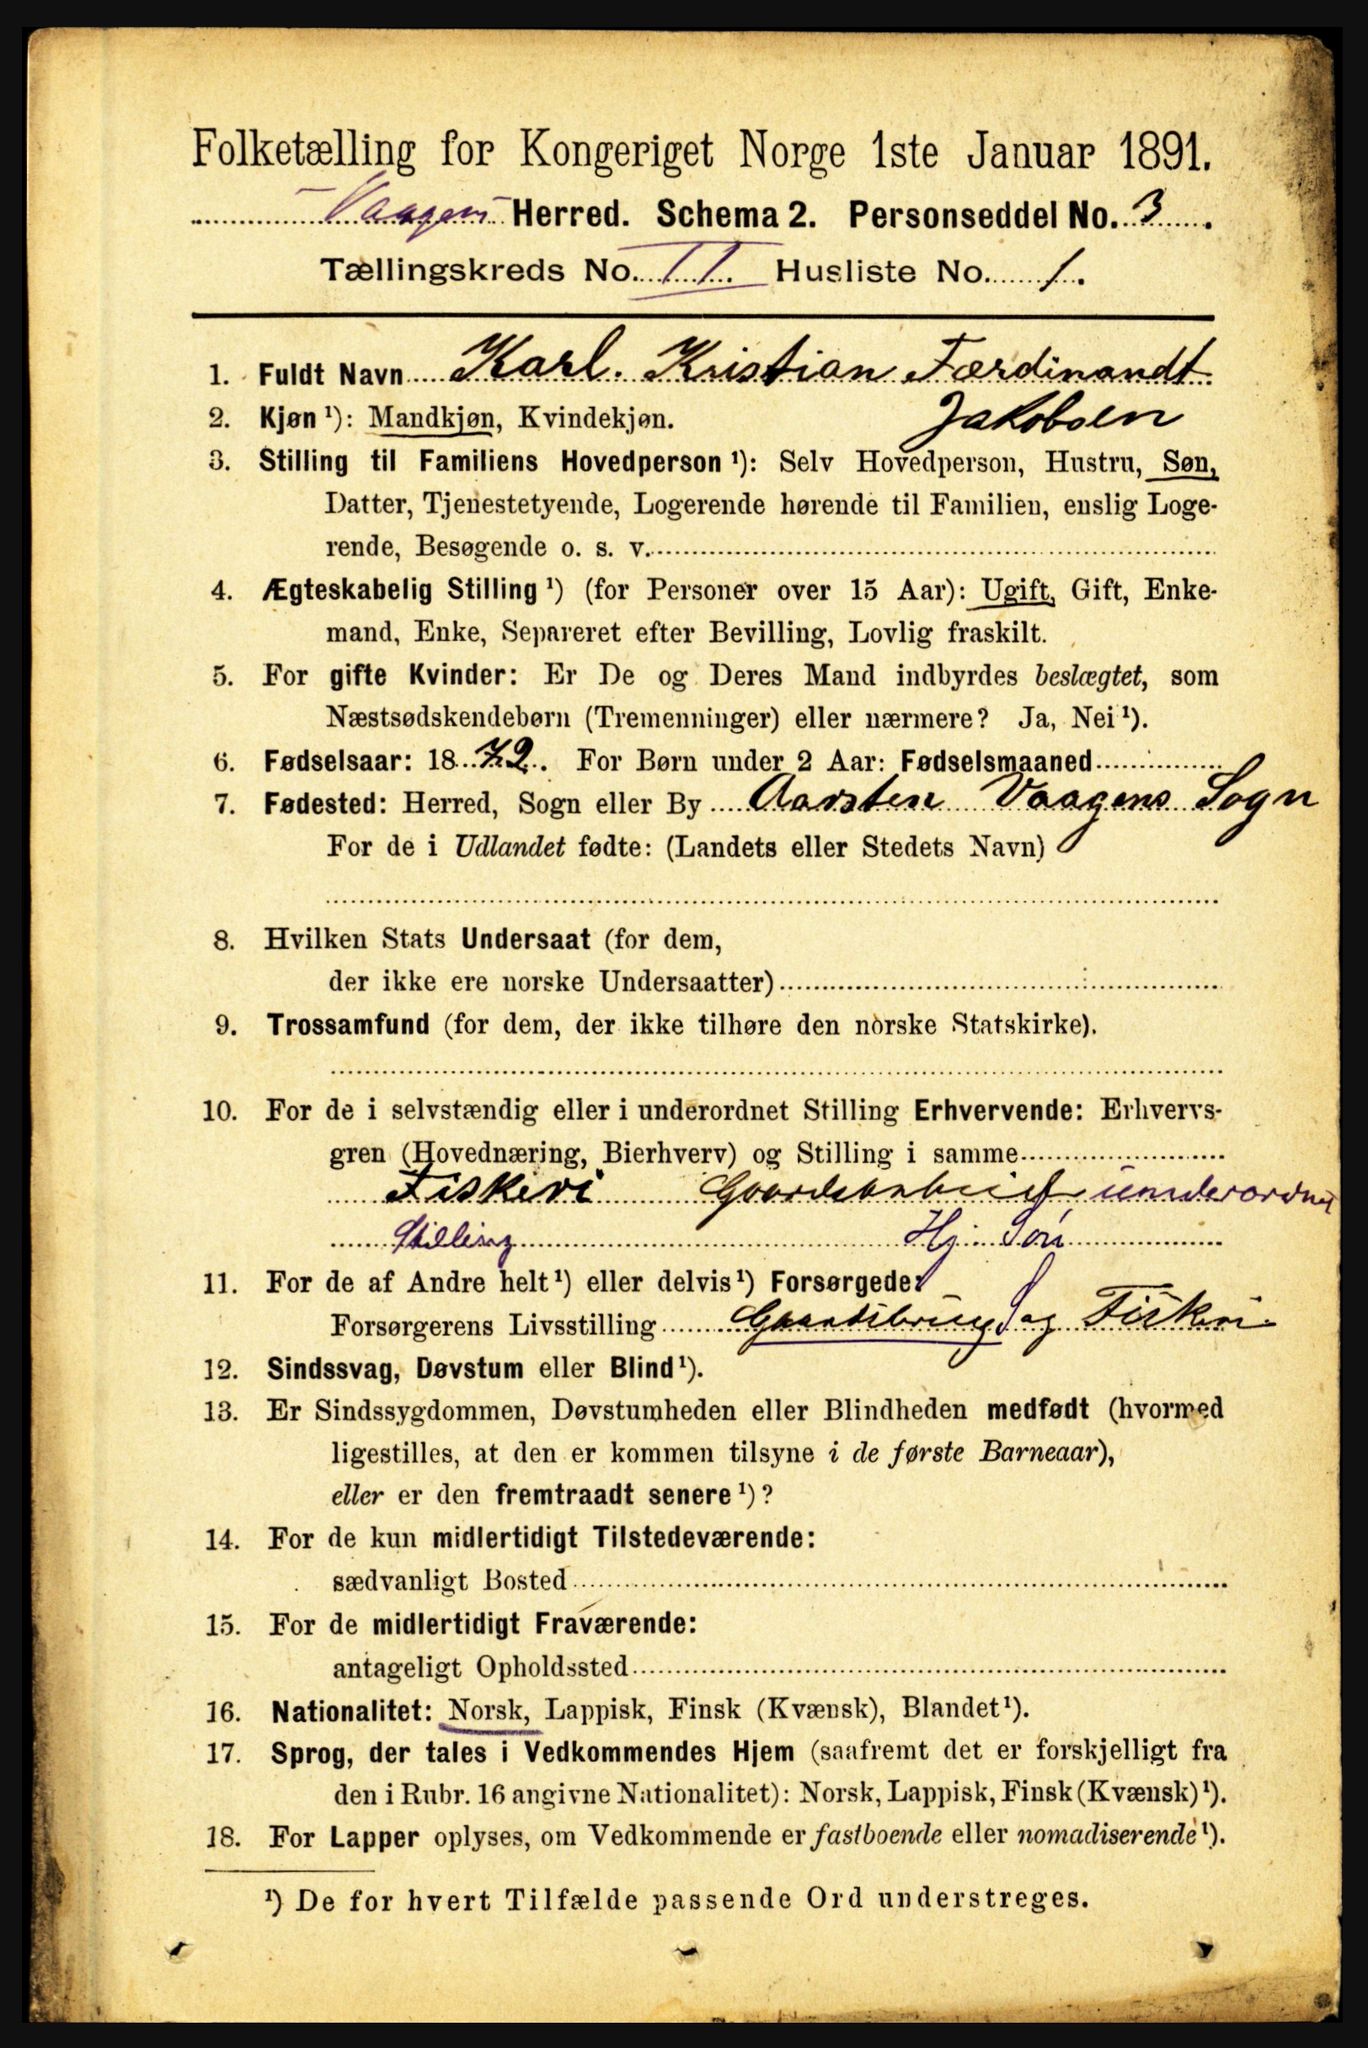 Folketælling for Kongeriget Norge 1ste Januar 1891.
Vaagens Herred. Schema 2. Personseddel No. 3.
Tællingskreds No. II. Husliste No. 1.
1. Fuldt Navn Karl. Kristian Færdinandt
Jakobsen
2. Kjøn ¹): Mandkjøn, Kvindekjøn.
3. Stilling til Familiens Hovedperson ¹): Selv Hovedperson, Hustru, Søn,
Datter, Tjenestetyende, Logerende hørende til Familien, enslig Loge-
rende, Besøgende o. s. v.
4. Ægteskabelig Stilling ¹) (for Personer over 15 Aar): Ugift, Gift, Enke-
mand, Enke, Separeret efter Bevilling, Lovlig fraskilt.
5. For gifte Kvinder: Er De og Deres Mand indbyrdes beslægtet, som
Næstsødskendebørn (Tremenninger) eller nærmere? Ja, Nei ¹).
6. Fødselsaar: 1872. For Børn under 2 Aar: Fødselsmaaned
7. Fødested: Herred, Sogn eller By Aarsten Vaagens Sogn
For de i Udlandet fødte: (Landets eller Stedets Navn)
8. Hvilken Stats Undersaat (for dem,
der ikke ere norske Undersaatter)
9. Trossamfund (for dem, der ikke tilhøre den norske Statskirke).
10. For de i selvstændig eller i underordnet Stilling Erhvervende: Erhvervs-
gren (Hovednæring, Bierhverv) og Stilling i samme
Fiskeri Gaardsarbeid underordnet
Stilling Hj. Søn
11. For de af Andre helt ¹) eller delvis ¹) Forsørgede:
Forsørgerens Livsstilling Gaardsbrug og Fiskeri
12. Sindssvag, Døvstum eller Blind ¹).
13. Er Sindssygdommen, Døvstumheden eller Blindheden medfødt (hvormed
ligestilles, at den er kommen tilsyne i de første Barneaar),
eller er den fremtraadt senere ¹)?
14. For de kun midlertidigt Tilstedeværende:
sædvanligt Bosted
15. For de midlertidigt Fraværende:
antageligt Opholdssted
16. Nationalitet: Norsk, Lappisk, Finsk (Kvænsk), Blandet ¹).
17. Sprog, der tales i Vedkommendes Hjem (saafremt det er forskjelligt fra
den i Rubr. 16 angivne Nationalitet): Norsk, Lappisk, Finsk (Kvænsk) ¹).
18. For Lapper oplyses, om Vedkommende er fastboende eller nomadiserende ¹).
¹) De for hvert Tilfælde passende Ord understreges.